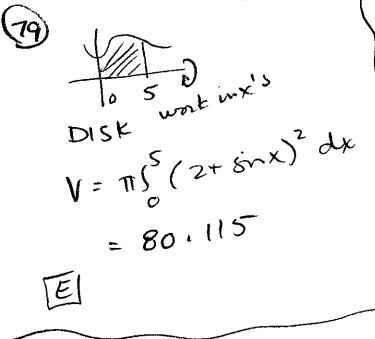 79
0 5
DISK work in x's
V = π∫₀⁵ (2 + sin x)² dx
= 80.115
E